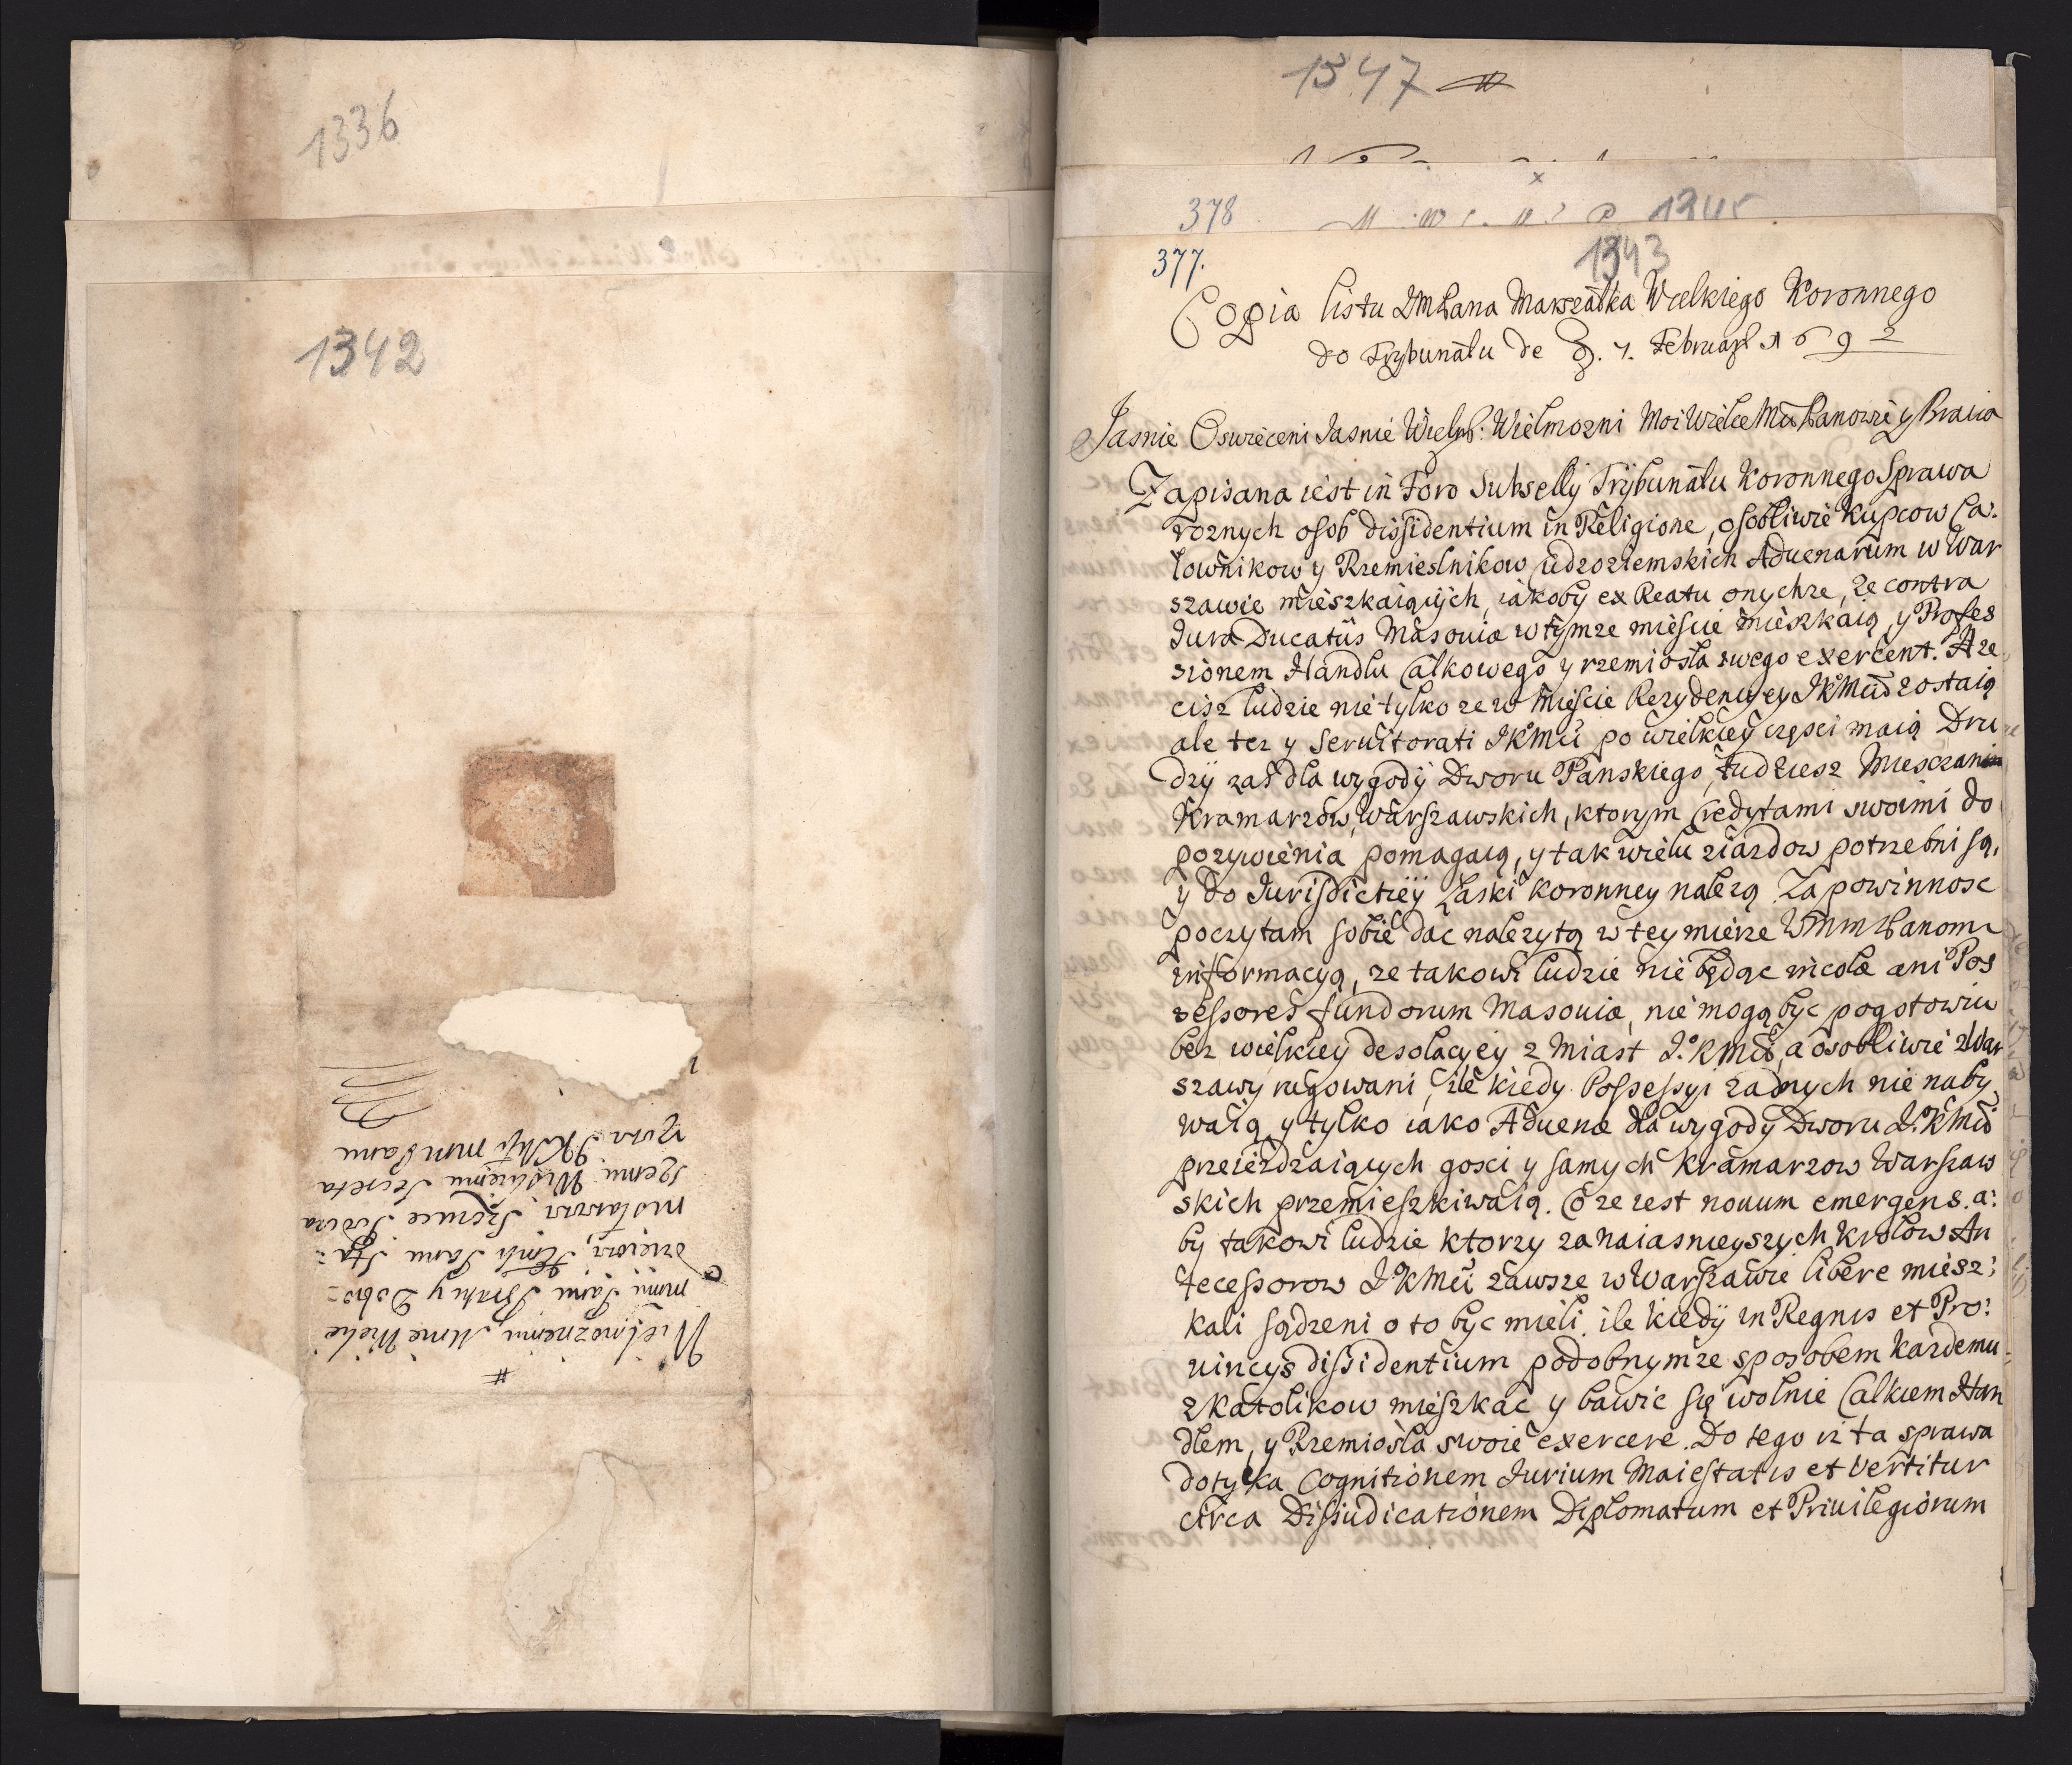 1336
1342
Wielmoznemu Mnie Wielce
memu Panu Bratu y Dobro-
dzieiowi
Panu
1347
378
377.
1343
Copia listu JMPana Marszałka Wielkiego Koronnego
do Trybunału de D. 7. Februarii 1692
Jasnie Oswieceni Jasnie Wielb: Wielmozni Moi Wielce Mci Panowie y Bracia
Zapisana iest in Foro Subselly Trybunału Koronnego Sprawa
roznych osob dissidentium in Religione, osobliwie kupcow Ca:
łownikow y Rzemieslnikow cudzoziemskich Aduenarum w War
szawie mieszkaiących, iakoby ex Reatu onychze, ze contra
Iura Ducatus Masouiæ w tymze miescie mieszkaią, y Profes
sionem Handlu całkowego y rzemiosła swego exercent. A ze
cisz ludzie nie tylko ze w Miescie Rezydencyey JKMci zostaią
ale tez y Seruitorati JKMci po wielkiey częsci maią Dru
dzy zas dla wygody Dworu Panskiego, tudziesz Miesczan
Kramarzow, Warszawskich, ktorym Credytami swoimi do
pozywienia pomagaią, y tak wielu ziazdow potrzebni są,
y do Jurisdictiey Laski koronney nalezą Za powinnosc
poczytam sobie dac nalezytą w tey mierze WMM Panom
informacyą, ze takowi ludzie nie będąc incolæ ani Pos
sessores fundorum Masouiæ, nie mogą byc pogotowiu
bez wielkiey desolacyey z Miast J.KMci, a osobliwie z War
szawy rugowani, ile kiedy Possessyi zadnych nie naby
waią y tylko iako Aduenæ dla wygody Dworu J.KMci
przeiezdzaiących gosci y samych kramarzow Warszaw
skich przemieszkiwaią. Co ze iest nouum emergens. a:
by takowi ludzie ktorzy za Naiasnieyszych Krolow An
tecessorow JKMci zawsze w Warszawie libere miesz:
kali sądzeni o to byc mieli. ile kiedy in Regnis et Pro:
uincys dissidentium podobnymze sposobem kazdemu
z Katolikow mieszkac y bawic się wolnie Całkiem Han
dlem, y Rzemiosła swoie exercere. Do tego iz ta sprawa
dotyka Cognitionem Iurium Maiestatis et vertitur
circa Dissiudicationem Diplomatum et Priuilegiorum